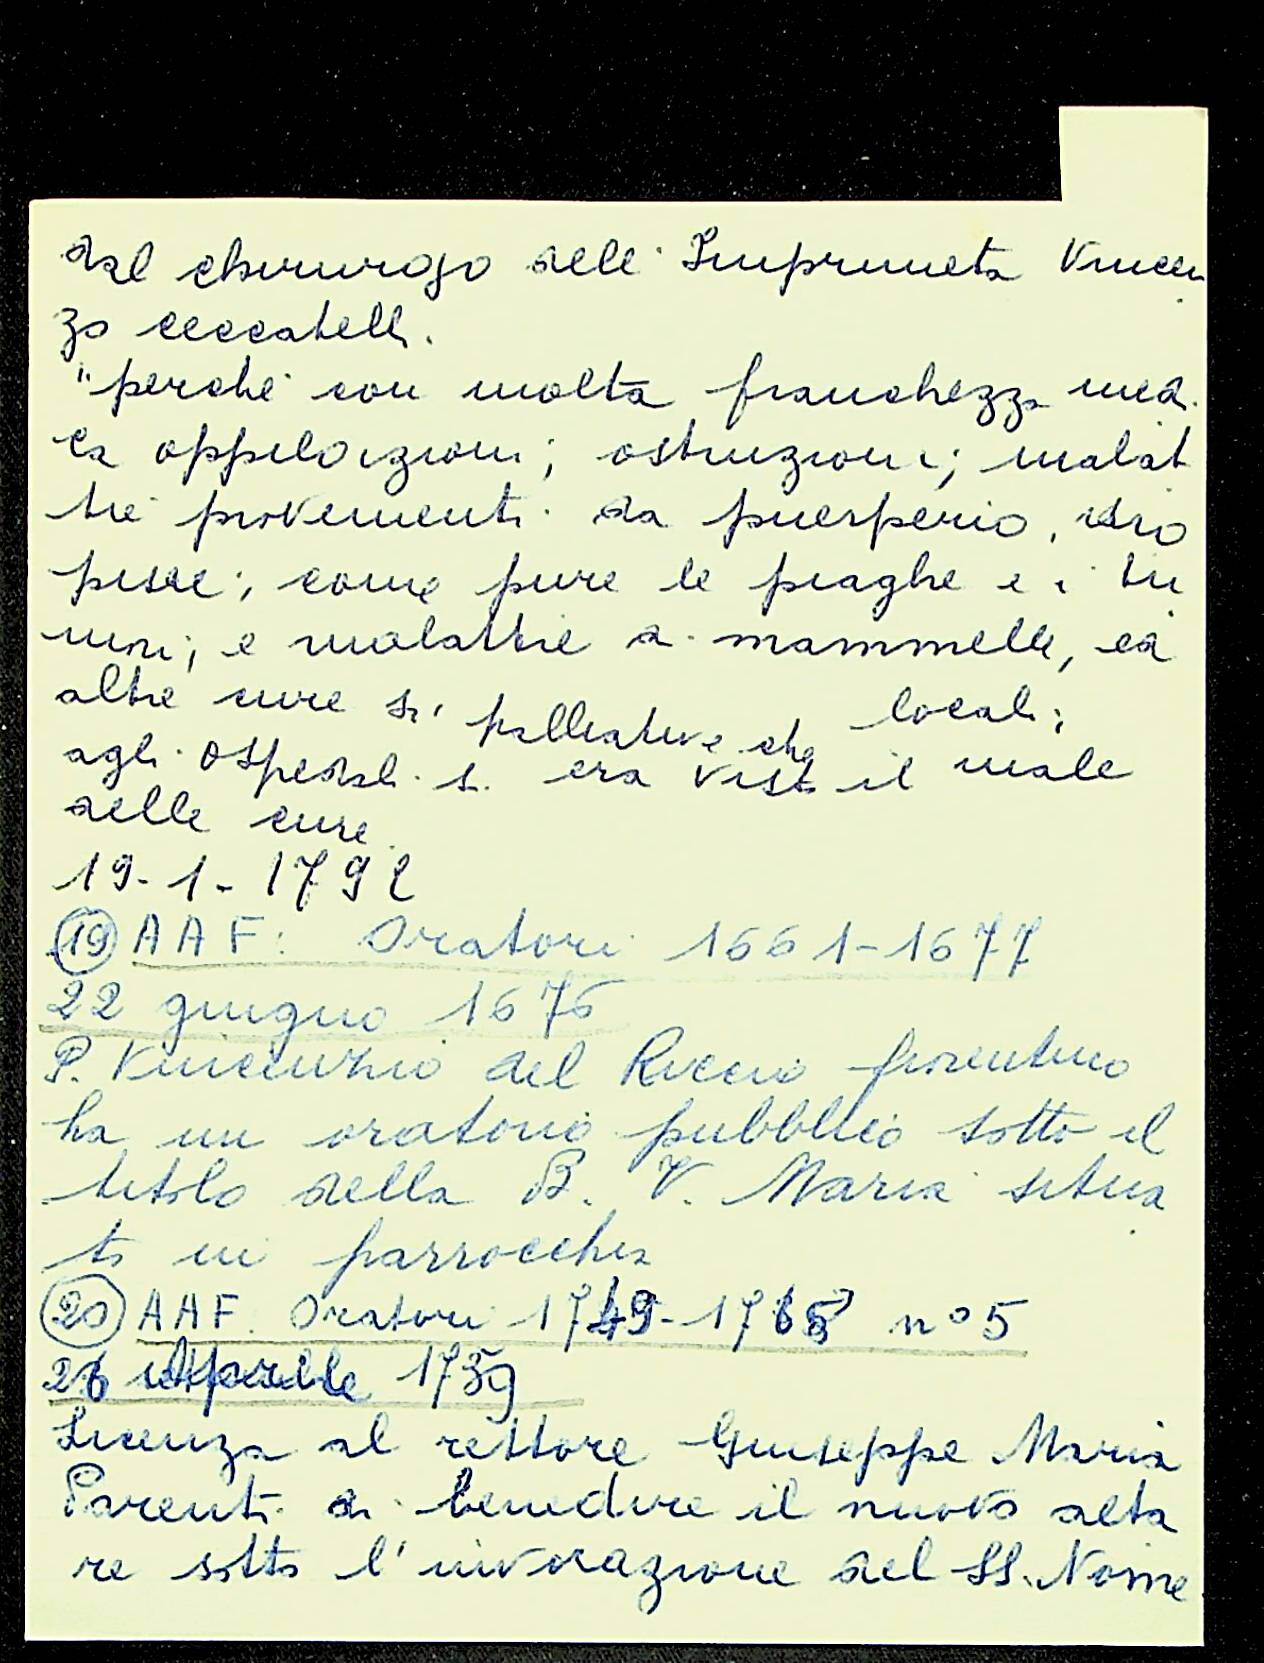 dal chirurgo dell'Impruneta Vincen
zo Ceccatelli.
"perché con molta franchezza med.
ca oppilazioni; ostruzioni; malat
tie provenienti da puerperio, idro
pisie; come pure le piaghe e i tu
mori; e malattie di mammelle, ed
altre cure si' palliative che locali;
agli ospedali si era visto il male
delle cure.
19-1-1792
(19) AAF: Oratori 1661-1677
22 giugno 1676
P. Vincenzio del Riccio fiorentino
ha un oratorio pubblico sotto il
titolo della B. V. Maria situa
to in parrocchia
(20) AAF. Oratori 1749-1765 n° 5
26 1759
Licenza al rettore Giuseppe Maria
Parenti di benedire il nuovo alta
re sotto l'invocazione del SS. Nome